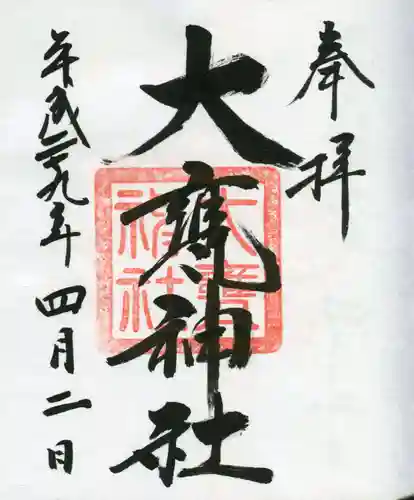 奉拝
大甕神社
大甕神社
平成二十九年四月二日